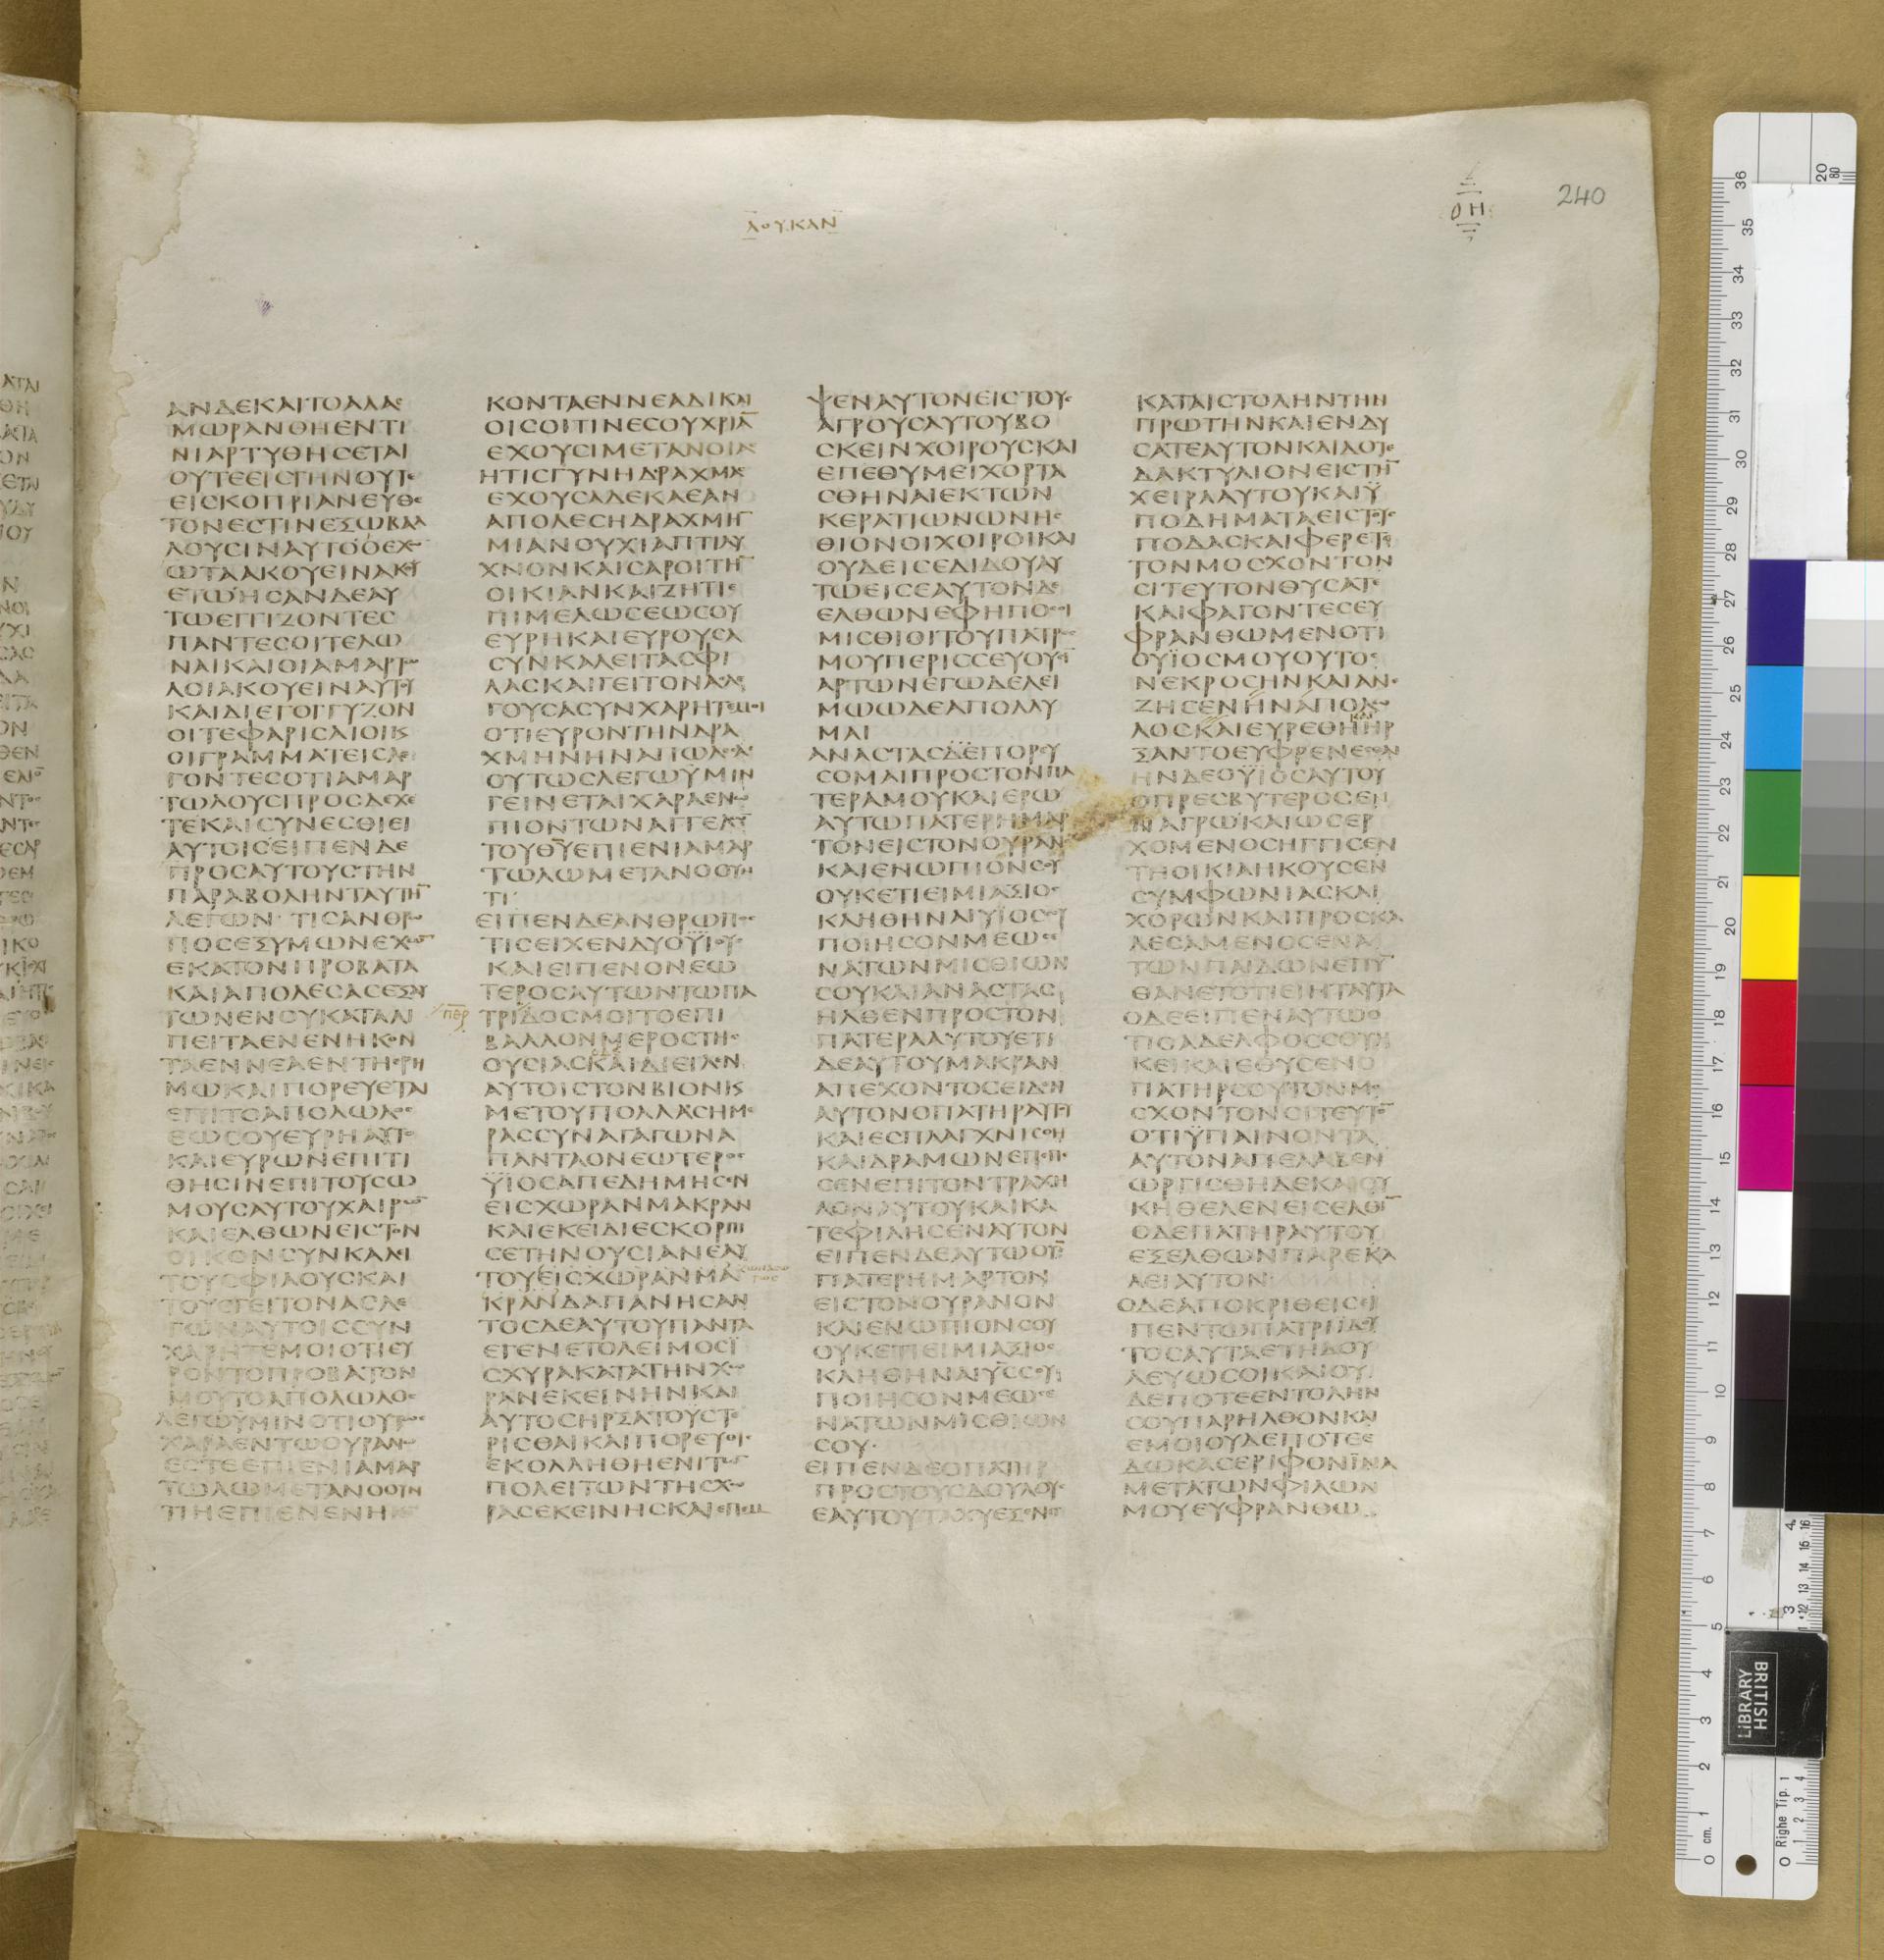 ΛΟΥΚΑΝ
ΟΗ
240
ΑΝΔΕΚΑΙΤΟΑΛΑϹ
ΜΩΡΑΝΘΗΕΝΤΙ
ΝΙΑΡΤΥΘΗϹΕΤΑΙ
ΟΥΤΕΕΙϹΓΗΝΟΥΤΕ
ΕΙϹΚΟΠΡΙΑΝΕΥΘΕ
ΤΟΝΕϹΤΙΝΕΞΩΒΑΛ
ΛΟΥϹΙΝΑΥΤΟΟΕΧΩ
ΩΤΑΑΚΟΥΕΙΝΑΚΟΥ
ΕΤΩΗϹΑΝΔΕΑΥ
ΤΩΕΓΓΙΖΟΝΤΕϹ
ΠΑΝΤΕϹΟΙΤΕΛΩ
ΝΑΙΚΑΙΟΙΑΜΑΡΤΩ
ΛΟΙΑΚΟΥΕΙΝΑΥΤΟΥ
ΚΑΙΔΙΕΓΟΓΓΥΖΟΝ
ΟΙΤΕΦΑΡΙϹΑΙΟΙΚ
ΟΙΓΡΑΜΜΑΤΕΙϹΛΕ
ΓΟΝΤΕϹΟΤΙΑΜΑΡ
ΤΩΛΟΥϹΠΡΟϹΔΕΧΕ
ΤΕΚΑΙϹΥΝΕϹΘΙΕΙ
ΑΥΤΟΙϹΕΙΠΕΝΔΕ
ΠΡΟϹΑΥΤΟΥϹΤΗΝ
ΠΑΡΑΒΟΛΗΝΤΑΥΤΗ̅
ΛΕΓΩΝ·ΤΙϹΑΝΘΡΩ
ΠΟϹΕΞΥΜΩΝΕΧΩ̅
ΕΚΑΤΟΝΠΡΟΒΑΤΑ
ΚΑΙΑΠΟΛΕϹΑϹΕΞΑΥ
ΤΩΝΕΝΟΥΚΑΤΑΛΙ
ΠΕΙΤΑΕΝΕΝΗΚΟΝ
ΤΑΕΝΝΕΑΕΝΤΗΕΡΗ
ΜΩΚΑΙΠΟΡΕΥΕΤΑΙ
ΕΠΙΤΟΑΠΟΛΩΛΟϹ
ΕΩϹΟΥΕΥΡΗΑΥΤΟ
ΚΑΙΕΥΡΩΝΕΠΙΤΙ
ΘΗϹΙΝΕΠΙΤΟΥϹΩ
ΜΟΥϹΑΥΤΟΥΧΑΙΡΩ̅
ΚΑΙΕΛΘΩΝΕΙϹΤΟΝ
ΟΙΚΟΝϹΥΝΚΑΛΙ
ΤΟΥϹΦΙΛΟΥϹΚΑΙ
ΤΟΥϹΓΕΙΤΟΝΑϹΛΕ
ΓΩΝΑΥΤΟΙϹϹΥΝ
ΧΑΡΗΤΕΜΟΙΟΤΙΕΥ
ΡΟΝΤΟΠΡΟΒΑΤΟΝ
ΜΟΥΤΟΑΠΟΛΩΛΟϹ
ΛΕΓΩΥΜΙΝΟΤΙΟΥΤΩϹ
ΧΑΡΑΕΝΤΩΟΥΡΑΝΩ
ΕϹΤΕΕΠΙΕΝΙΑΜΑΡ
ΤΩΛΩΜΕΤΑΝΟΟΥΝ
ΤΙΗΕΠΙΕΝΕΝΗ
ΚΟΝΤΑΕΝΝΕΑΔΙΚΑΙ
ΟΙϹΟΙΤΙΝΕϹΟΥΧΡΙΑ̅
ΕΧΟΥϹΙΜΕΤΑΝΟΙΑϹ
ΗΤΙϹΓΥΝΗΔΡΑΧΜΑϹ
ΕΧΟΥϹΑΔΕΚΑΕΑΝ
ΑΠΟΛΕϹΗΔΡΑΧΜΗ̅
ΜΙΑΝΟΥΧΙΑΠΤΙΛΥ
ΧΝΟΝΚΑΙϹΑΡΟΙΤΗ̅
ΟΙΚΙΑΝΚΑΙΖΗΤΙΕ
ΠΙΜΕΛΩϹΕΩϹΟΥ
ΕΥΡΗΚΑΙΕΥΡΟΥϹΑ
ϹΥΝΚΑΛΕΙΤΑϹΦΙ
ΛΑϹΚΑΙΓΕΙΤΟΝΑϹΛΕ
ΓΟΥϹΑϹΥΝΧΑΡΗΤΕΜΟΙ
ΟΤΙΕΥΡΟΝΤΗΝΔΡΑ
ΧΜΗΝΗΝΑΠΩΛΕϹΑ
ΟΥΤΩϹΛΕΓΩΫΜΙΝ
ΓΕΙΝΕΤΑΙΧΑΡΑΕΝΩ
ΠΙΟΝΤΩΝΑΓΓΕΛΩ̅
ΤΟΥΘΥ̅ΕΠΙΕΝΙΑΜΑΡ
ΤΩΛΩΜΕΤΑΝΟΟΥΝ
ΤΙ·
ΕΙΠΕΝΔΕΑΝΘΡΩΠΟϹ
ΤΙϹΕΙΧΕΝΔΥΟΫΙΟΥϹ
ΚΑΙΕΙΠΕΝΟΝΕΩ
ΤΕΡΟϹΑΥΤΩΝΤΩΠΑ
πε̅ρ
ΤΡΙΔΟϹΜΟΙΤΟΕΠΙ
ΒΑΛΛΟΝΜΕΡΟϹΤΗϹ
ΟΥϹΙΑϹΚΑΙΔΙΕΙΛΕΝ
ΑΥΤΟΙϹΤΟΝΒΙΟΝΚ
ΜΕΤΟΥΠΟΛΛΑϹΗΜΕ
ΡΑϹϹΥΝΑΓΑΓΩΝΑ
ΠΑΝΤΑΟΝΕΩΤΕΡΟϹ
ΫΙΟϹΑΠΕΔΗΜΗϹΕΝ
ΕΙϹΧΩΡΑΝΜΑΚΡΑΝ
ΚΑΙΕΚΕΙΔΙΕϹΚΟΡΠΙ
ϹΕΤΗΝΟΥϹΙΑΝΕΑΥ
ΤΟΥΕΙϹΧΩΡΑΝΜΑ
ΚΡΑΝΔΑΠΑΝΗϹΑΝ
ΤΟϹΔΕΑΥΤΟΥΠΑΝΤΑ
ΕΓΕΝΕΤΟΛΕΙΜΟϹΪ
ϹΧΥΡΑΚΑΤΑΤΗΝΧΩ
ΡΑΝΕΚΕΙΝΗΝΚΑΙ
ΑΥΤΟϹΗΡΞΑΤΟΥϹΤΕ
ΡΙϹΘΑΙΚΑΙΠΟΡΕΥΘΙϹ
ΕΚΟΛΛΗΘΗΕΝΙΤΩ̅
ΠΟΛΕΙΤΩΝΤΗϹΧΩ
ΡΑϹΕΚΕΙΝΗϹΚΑΙΕΠΕΜ
ΨΕΝΑΥΤΟΝΕΙϹΤΟΥϹ
ΑΓΡΟΥϹΑΥΤΟΥΒΟ
ϹΚΕΙΝΧΟΙΡΟΥϹΚΑΙ
ΕΠΕΘΥΜΕΙΧΟΡΤΑ
ϹΘΗΝΑΙΕΚΤΩΝ
ΚΕΡΑΤΙΩΝΩΝΗϹ
ΘΙΟΝΟΙΧΟΙΡΟΙΚΑΙ
ΟΥΔΕΙϹΕΔΙΔΟΥΑΥ
ΤΩΕΙϹΕΑΥΤΟΝΔΕ
ΕΛΘΩΝΕΦΗΠΟϹΟΙ
ΜΙϹΘΙΟΙΤΟΥΠΑΤΡΟϹ
ΜΟΥΠΕΡΙϹϹΕΥΟΥϹΙ̅
ΑΡΤΩΝΕΓΩΔΕΛΕΙ
ΜΩΩΔΕΑΠΟΛΛΥ
ΜΑΙ
ΑΝΑϹΤΑϹΔΕΠΟΡΕΥ
ϹΟΜΑΙΠΡΟϹΤΟΝΠΑ
ΤΕΡΑΜΟΥΚΑΙΕΡΩ
ΑΥΤΩΠΑΤΕΡΗΜΑΡ
ΤΟΝΕΙϹΤΟΝΟΥΡΑΝΟ̅
ΚΑΙΕΝΩΠΙΟΝϹΟΥ
ΟΥΚΕΤΙΕΙΜΙΑΞΙΟϹ
ΚΛΗΘΗΝΑΙΥΙΟϹϹΟΥ
ΠΟΙΗϹΟΝΜΕΩϹΕ
ΝΑΤΩΝΜΙϹΘΙΩΝ
ϹΟΥΚΑΙΑΝΑϹΤΑϹ
ΗΛΘΕΝΠΡΟϹΤΟΝ
ΠΑΤΕΡΑΑΥΤΟΥΕΤΙ
ΔΕΑΥΤΟΥΜΑΚΡΑΝ
ΑΠΕΧΟΝΤΟϹΕΙΔΕΝ
ΑΥΤΟΝΟΠΑΤΗΡΑΥΤΟΥ
ΚΑΙΕϹΠΛΑΓΧΝΙϹΘΗ
ΚΑΙΔΡΑΜΩΝΕΠΕΠΕ
ϹΕΝΕΠΙΤΟΝΤΡΑΧΗ
ΛΟΝΑΥΤΟΥΚΑΙΚΑ
ΤΕΦΙΛΗϹΕΝΑΥΤΟΝ
ΕΙΠΕΝΔΕΑΥΤΩΟΥΣ
ΠΑΤΕΡΗΜΑΡΤΟΝ
ΕΙϹΤΟΝΟΥΡΑΝΟΝ
ΚΑΙΕΝΩΠΙΟΝϹΟΥ
ΟΥΚΕΤΙΕΙΜΙΑΞΙΟϹ
ΚΛΗΘΗΝΑΙΥΣϹΟΥ
ΠΟΙΗϹΟΝΜΕΩϹΕ
ΝΑΤΩΝΜΙϹΘΙΩΝ
ϹΟΥ·
ΕΙΠΕΝΔΕΟΠΑΤΗΡ
ΠΡΟϹΤΟΥϹΔΟΥΛΟΥϹ
ΕΑΥΤΟΥΤΑΧΥΕΞΕΝΕΓ
ΚΑΤΑΙϹΤΟΛΗΝΤΗΝ
ΠΡΩΤΗΝΚΑΙΕΝΔΥ
ϹΑΤΕΑΥΤΟΝΚΑΙΔΟΤΕ
ΔΑΚΤΥΛΙΟΝΕΙϹΤΗ̅
ΧΕΙΡΑΑΥΤΟΥΚΑΙΫ
ΠΟΔΗΜΑΤΑΕΙϹΤΟΥϹ
ΠΟΔΑϹΚΑΙΦΕΡΕΤΕ
ΤΟΝΜΟϹΧΟΝΤΟΝ
ϹΙΤΕΥΤΟΝΘΥϹΑΤΕ
ΚΑΙΦΑΓΟΝΤΕϹΕΥ
ΦΡΑΝΘΩΜΕΝΟΤΙ
ΟΥΪΟϹΜΟΥΟΥΤΟϹ
ΝΕΚΡΟϹΗΝΚΑΙΑΝΕ
ΖΗϹΕΝΗΝΑΠΟΛΩ
ΛΟϹΚΑΙΕΥΡΕΘΗΗΡ
ΞΑΝΤΟΕΥΦΡΕΝΕϹΘΑΙ
ΗΝΔΕΟΫΙΟϹΑΥΤΟΥ
ΟΠΡΕϹΒΥΤΕΡΟϹΕΝ
ΑΓΡΩΚΑΙΩϹΕΡ
ΧΟΜΕΝΟϹΗΓΓΙϹΕΝ
ΤΗΟΙΚΙΑΗΚΟΥϹΕΝ
ϹΥΜΦΩΝΙΑϹΚΑΙ
ΧΟΡΩΝΚΑΙΠΡΟϹΚΑ
ΛΕϹΑΜΕΝΟϹΕΝΑ
ΤΩΝΠΑΙΔΩΝΕΠΥ̅
ΘΑΝΕΤΟΤΙΕΙΗΤΑΥΤΑ
ΟΔΕΕΙΠΕΝΑΥΤΩΟ
ΤΙΟΑΔΕΛΦΟϹϹΟΥΗ
ΚΕΙΚΑΙΕΘΥϹΕΝΟ
ΠΑΤΗΡϹΟΥΤΟΝΜΟ
ϹΧΟΝΤΟΝϹΙΤΕΥΤΟ̅
ΟΤΙΫΓΙΑΙΝΟΝΤΑ
ΑΥΤΟΝΑΠΕΛΑΒΕΝ
ΩΡΓΙϹΘΗΔΕΚΑΙΟΥ
ΚΗΘΕΛΕΝΕΙϹΕΛΘΙ̅
ΟΔΕΠΑΤΗΡΑΥΤΟΥ
ΕΞΕΛΘΩΝΠΑΡΕΚΑ
ΛΕΙΑΥΤΟΝ
ΟΔΕΑΠΟΚΡΙΘΕΙϹΕΙ
ΠΕΝΤΩΠΑΤΡΙΪΔΟΥ
ΤΟϹΑΥΤΑΕΤΗΔΟΥ
ΛΕΥΩϹΟΙΚΑΙΟΥ
ΔΕΠΟΤΕΕΝΤΟΛΗΝ
ϹΟΥΠΑΡΗΛΘΟΝΚΑΙ
ΕΜΟΙΟΥΔΕΠΟΤΕΕ
ΔΩΚΑϹΕΡΙΦΟΝΪΝΑ
ΜΕΤΑΤΩΝΦΙΛΩΝ
ΜΟΥΕΥΦΡΑΝΘΩ
BRITISH
LIBRARY
0 Righe Tip. 1
0 cm. 1